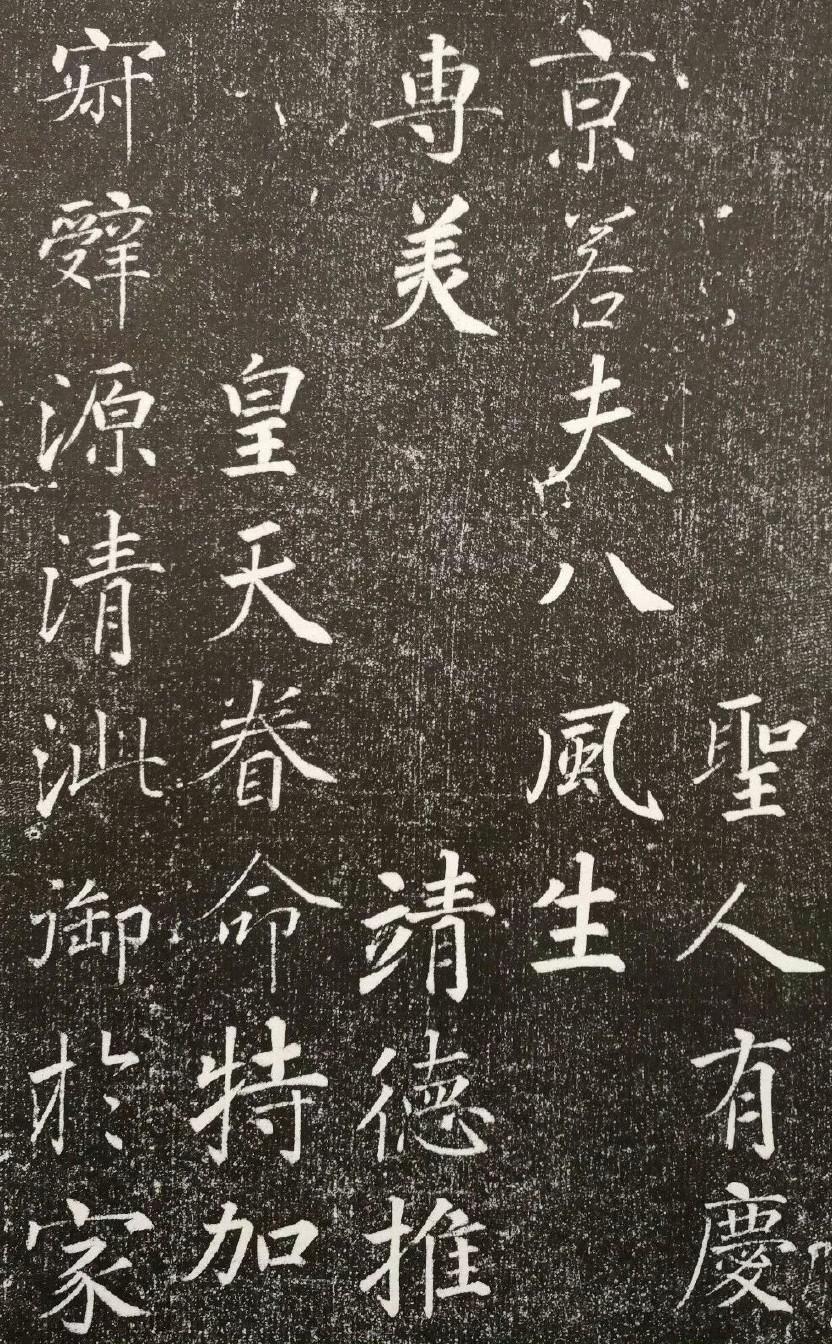 聖人有慶
京若夫八風生
専美靖徳推
皇天眷命特加
辤源清泚御於家